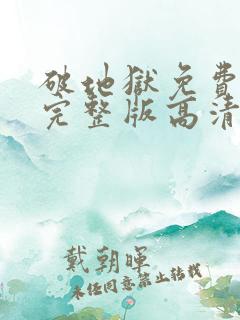 破地獄免費
完整版高清
戴朝暉
未經同意禁止轉載